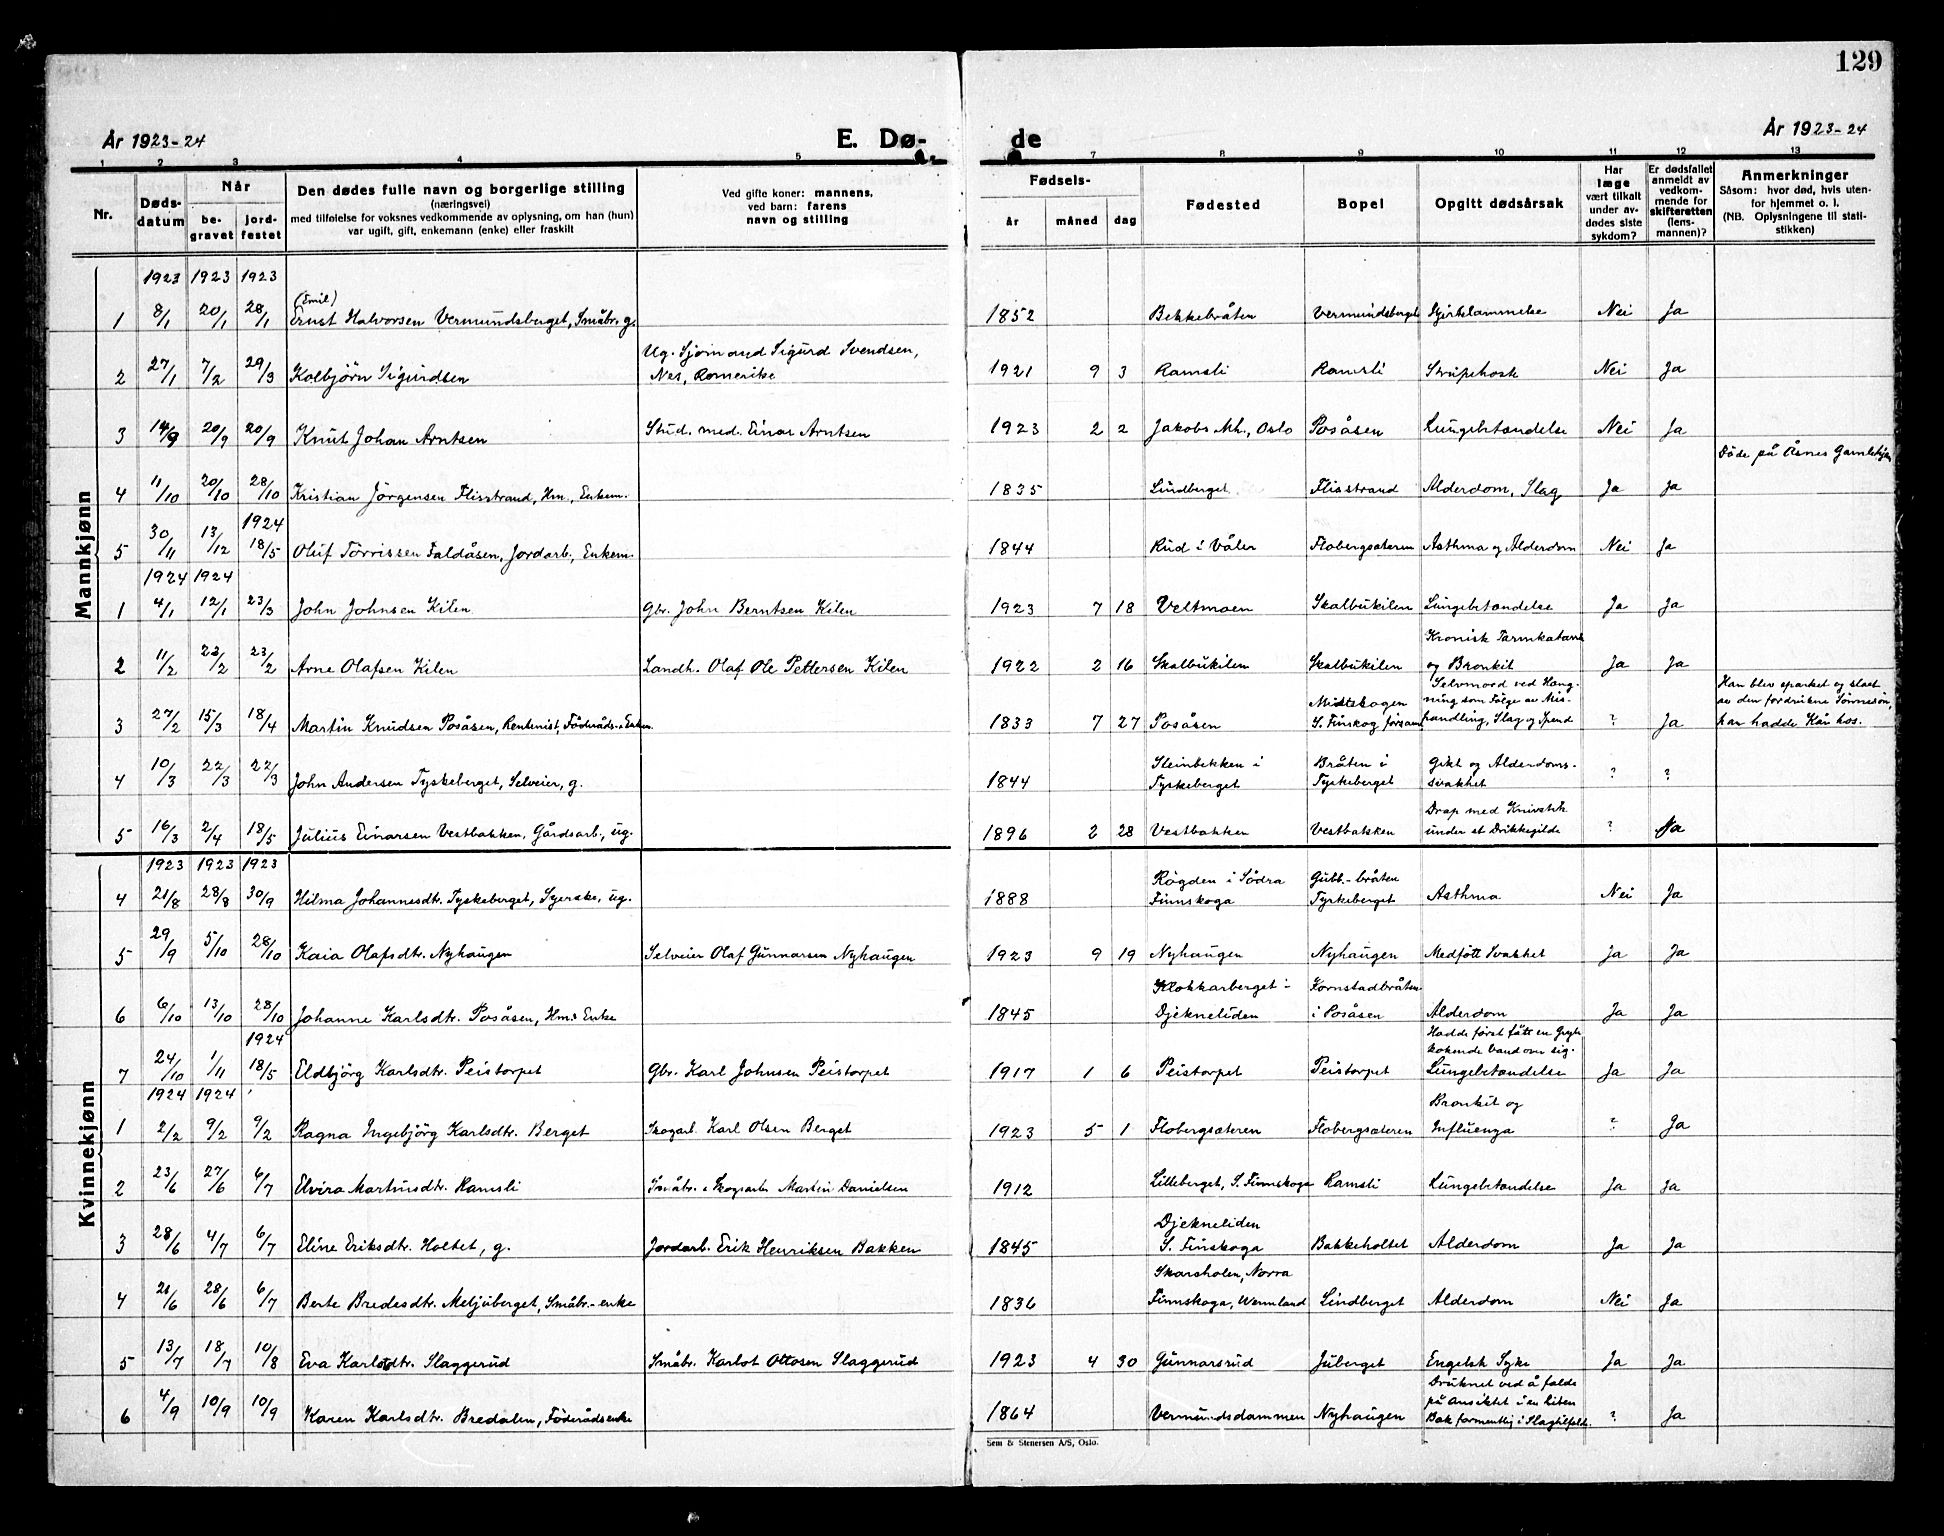 129
År 1923-24
E. Dø-
de
År 1923-24
1 2 3 4 5 7 8 9 10 11 12 13
Nr.
Døds-
datum
Når
be-
gravet
jord-
festet
Den dødes fulle navn og borgerlige stilling
(næringsvei)
med tilføielse for voksnes vedkommende av oplysning, om han (hun)
var ugift, gift, enkemann (enke) eller fraskilt
Ved gifte koner: mannens,
ved barn: farens
navn og stilling
Fødsels-
år
måned
dag
Fødested
Bopel
Opgitt dødsårsak
Har
læge
vært tilkalt
under av-
dødes siste
sykdom?
Er dødsfallet
anmeldt av
vedkom-
mende for
skifteretten
(lens-
mannen)?
Anmerkninger
Såsom: hvor død, hvis uten-
for hjemmet o. l.
(NB. Oplysningene til stati-
stikken)
Mannkjønn
1923 1923 1923
(Emil)
1 8/1 20/1 28/1 Ernst Halvorsen Vermundsberget, Småbr. g. 1852 Bekkebråten Vermundsberget Nei Ja
Ug. Sjømand Sigurd Svendsen,
2 27/1 7/2 29/3 Kolbjörn Sigurdsen Nes, Romerike 1921 9 3 Ramsli Ramsli Strupehoste Nei Ja
3 14/9 20/9 20/9 Knut Johan Arntsen Stud. med. Einar Arntsen 1923 2 2 Jakobs Mh., Oslo Posåsen Lungebetændelse Nei Ja
Døde på Åsnes Gamlehjem
4 11/10 20/10 28/10 Kristian Jörgensen Flisstrand, Hm., Enkem. 1835 Lindberget Flisstrand Alderdom, Slag Ja Ja
1924
5 30/11 13/12 18/5 Oluf Törrissen Faldåsen, Jordarb., Enkem. 1844 Rud i Våler Flobergsæteren Asthma og Alderdom Nei Ja
1924 1924
1 4/1 12/1 23/3 John Johnsen Kilen Gbr. John Berntsen Kilen 1923 7 18 Veltmoen Skalbukilen Lungebetændelse Ja Ja
Kronisk Tarmkatarrh
2 11/2 23/2 23/2 Arne Olafsen Kilen Landh. Olaf Ole Pettersen Kilen 1922 2 16 Skalbukilen Skalbukilen og Bronkit Ja Ja
Selvmord ved Hæng-
Han blev sparket og slaat
Midtskogen
ning som Følge av Mis-
av den fordrukne Sønnesøn,
3 27/2 15/3 18/4 Martin Knudsen Posåsen, Rentenist, Föderåds-Enkem. 1833 7 27 Posåsen S. Finskog forsaml. handling, Slag og Spend ? Ja han hadde Kår hos.
Steinbekken i Bråten i Gikt og Alderdoms-
4 10/3 22/3 22/3 John Andersen Tyskeberget, Selveier, g. 1844 Tyskeberget Tyskeberget svakhet ? ?
Drap med Knivstik
5 16/3 2/4 18/5 Julius Einarsen Vestbakken, Gårdsarb., ug. 1896 2 28 Vestbakken Vestbakken under et Drikkegilde ? Ja
Kvinnekjønn
1923 1923 1923
Rögden i Södra Gubb.-bråten
4 21/8 28/8 30/9 Hilma Johannesdtr. Tyskeberget, Syerske, ug. 1888 Finnskoga Tyskeberget Asthma Nei Ja
5 29/9 5/10 28/10 Kaia Olafsdtr. Nyhaugen Selveier Olaf Gunnarsen Nyhaugen 1923 9 19 Nyhaugen Nyhaugen Medfött Svakhet Ja Ja
Klokkarberget i Kornstadbråten
6 6/10 13/10 28/10 Johanne Karlsdtr. Posåsen, Hm.s Enke 1845 Djekneliden i Posåsen Alderdom Ja Ja
1924
Hadde først fått en Gryte
kokende Vand over sig.
7 24/10 1/11 18/5 Eldbjörg Karlsdtr. Peistorpet Gbr. Karl Johnsen Peistorpet 1917 1 6 Peistorpet Peistorpet Lungebetændelse Ja Ja
1924 1924
Bronkit og
1 2/2 9/2 9/2 Ragna Ingebjörg Karlsdtr. Berget Skogarb. Karl Olsen Berget 1923 5 1 Flobergsæteren Flobergsæteren Influenza ? Ja
2 23/6 27/6 6/7 Elvira Martinsdtr. Ramsli Småbr. & Skogsarb. Martin Danielsen 1912 Lilleberget, S. Finnskoga Ramsli Lungebetændelse Ja Ja
Djekneliden
3 28/6 4/7 6/7 Eline Eriksdtr. Holtet, g. Jordarb. Erik Henriksen Bakken 1845 S. Finskoga Bakkeholtet Alderdom Ja Ja
Skarsholen, Norra
4 21/6 28/6 6/7 Berte Bredesdtr. Meljuberget, Småbr.-enke 1836 Finnskoga, Wermland Lindberget Alderdom Nei Ja
5 13/7 18/7 10/8 Eva Karlotdtr. Slaggerud Småbr. Karlot Ottosen Slaggerud 1923 4 30 Gunnarsrud Juberget Engelsk Syke Ja Ja
Druknet ved å falde
på Ansiktet i en liten
6 4/9 10/9 10/9 Karen Karlsdtr. Bredalen, Föderådsenke 1864 Vermundsdammen Nyhaugen Bæk formentlig i Slagtilfelde. ? Ja
Sem & Stenersen A/S, Oslo.